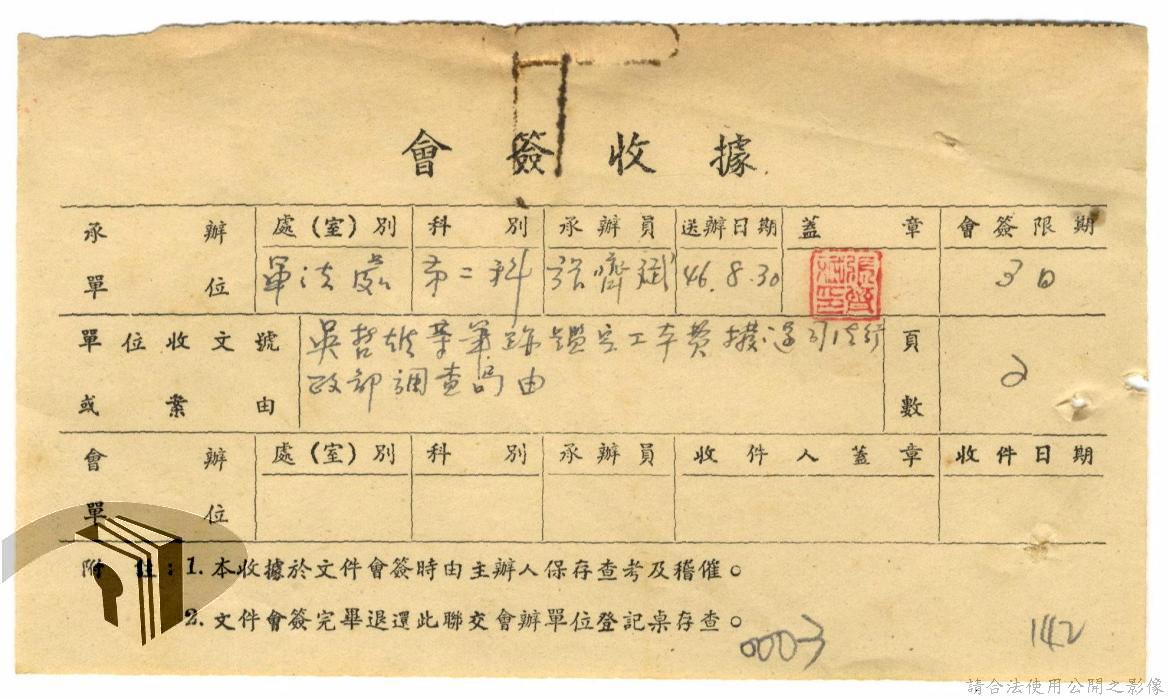 會簽收據
承辦 處(室)別 科別 承辦員 送辦日期 蓋章 會簽限期
單位 軍法處 第二科 張齊斌 46.8.30 3日
單位收文號 吳哲雄等筆跡鑑定工本費撥還司法行 頁
或案由 政部調查局由 數 2
會辦 處(室)別 科別 承辦員 收件人蓋章 收件日期
單位
附註:1.本收據於文件會簽時由主辦人保存查考及稽催。
2.文件會簽完畢退還此聯交會辦單位登記桌存查。
0003 142
請合法使用公開之影像